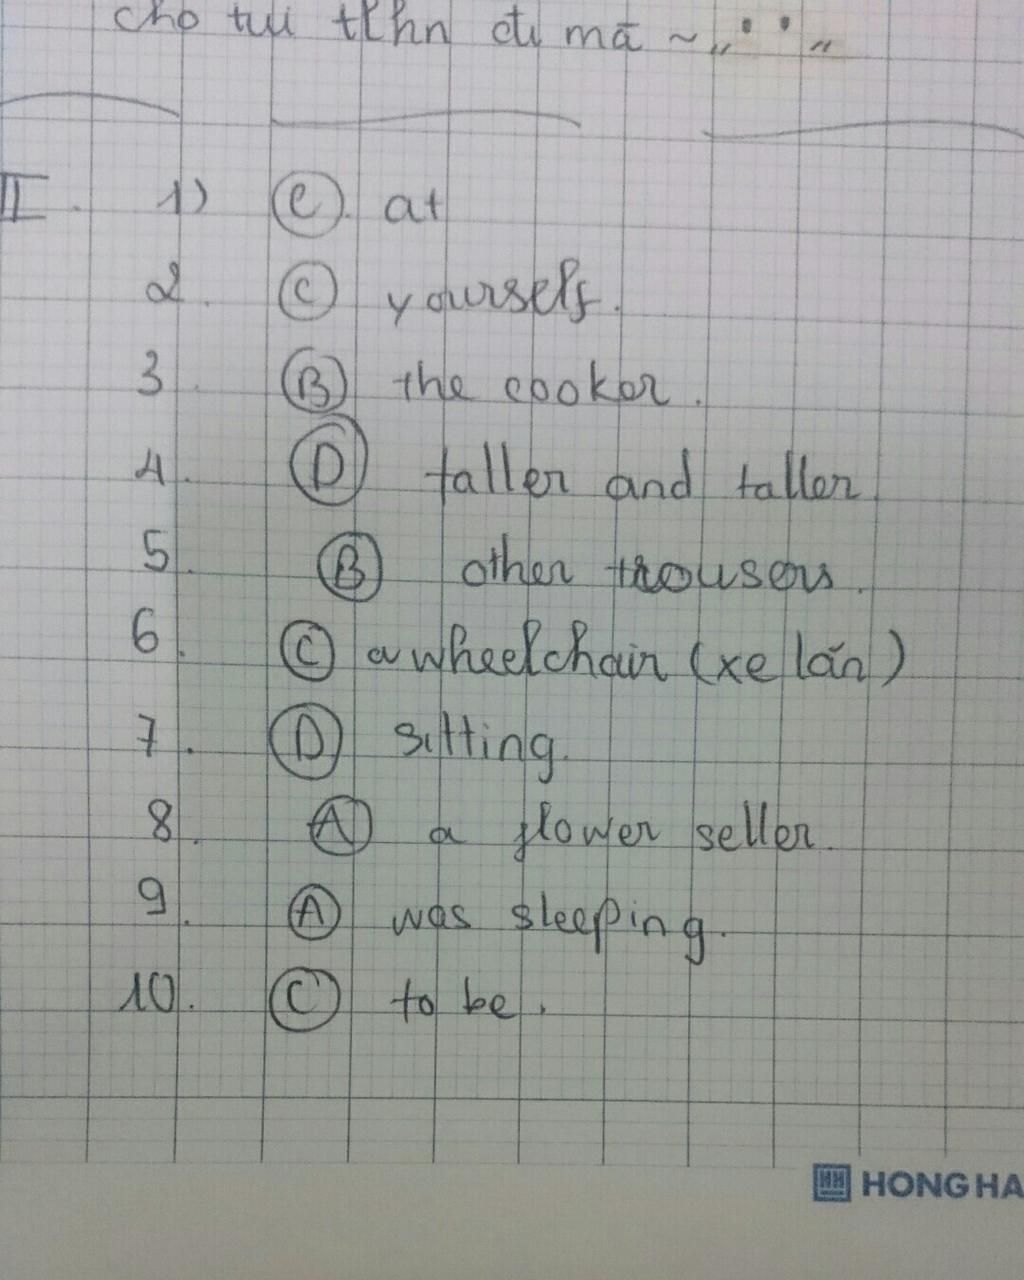 cho tui tlhn đi mã ~,,• •,,
II. 1) C. at
2. C yourself.
3. B the cooker.
4. D taller and taller
5. B other trousers.
6. C a wheelchair (xe lăn)
7. D sitting.
8. A a flower seller.
9. A was sleeping.
10. C to be.
HH HONG HA